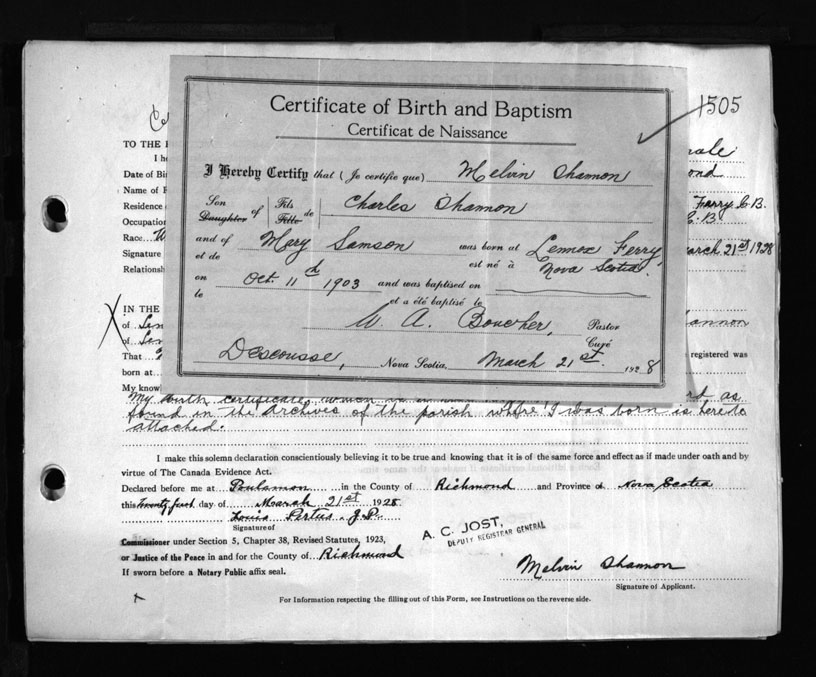 1505
Certificate of Birth and Baptism
Certificat de Naissance
I Hereby Certify that (Je certifie que) Melvin Shannon
Son Daughter of Fils Fille de Charles Shannon
and of Mary Samson was born at Lennox Ferry,
et de est né à Nova Scotia.
on Oct. 11th 1903 and was baptised on
le et a été baptisé le
W. A. Boucher, Pastor
Curé
Descousse, Nova Scotia, March 21st. 1928
TO THE
I he
Date of Bir
Name of F
Residence Ferry C.B.
Occupation C.B.
Race
Signature March 21st 1928
Relationsh
IN THE
of
of
That registered was
born at
My knowl
My birth certificate which is as
found in the Archives of the parish where I was born is hereto
attached.
I make this solemn declaration conscientiously believing it to be true and knowing that it is of the same force and effect as if made under oath and by
virtue of The Canada Evidence Act.
Declared before me at Poulamon in the County of Richmond and Province of Nova Scotia
this Twenty first day of March 21st 1928
Louis Pertus J.P.
Signature of
Commissioner under Section 5, Chapter 38, Revised Statutes, 1923,
or Justice of the Peace in and for the County of Richmond
If sworn before a Notary Public affix seal.
A. C. JOST,
DEPUTY REGISTRAR GENERAL
Melvin Shannon
Signature of Applicant.
For Information respecting the filling out of this Form, see Instructions on the reverse side.